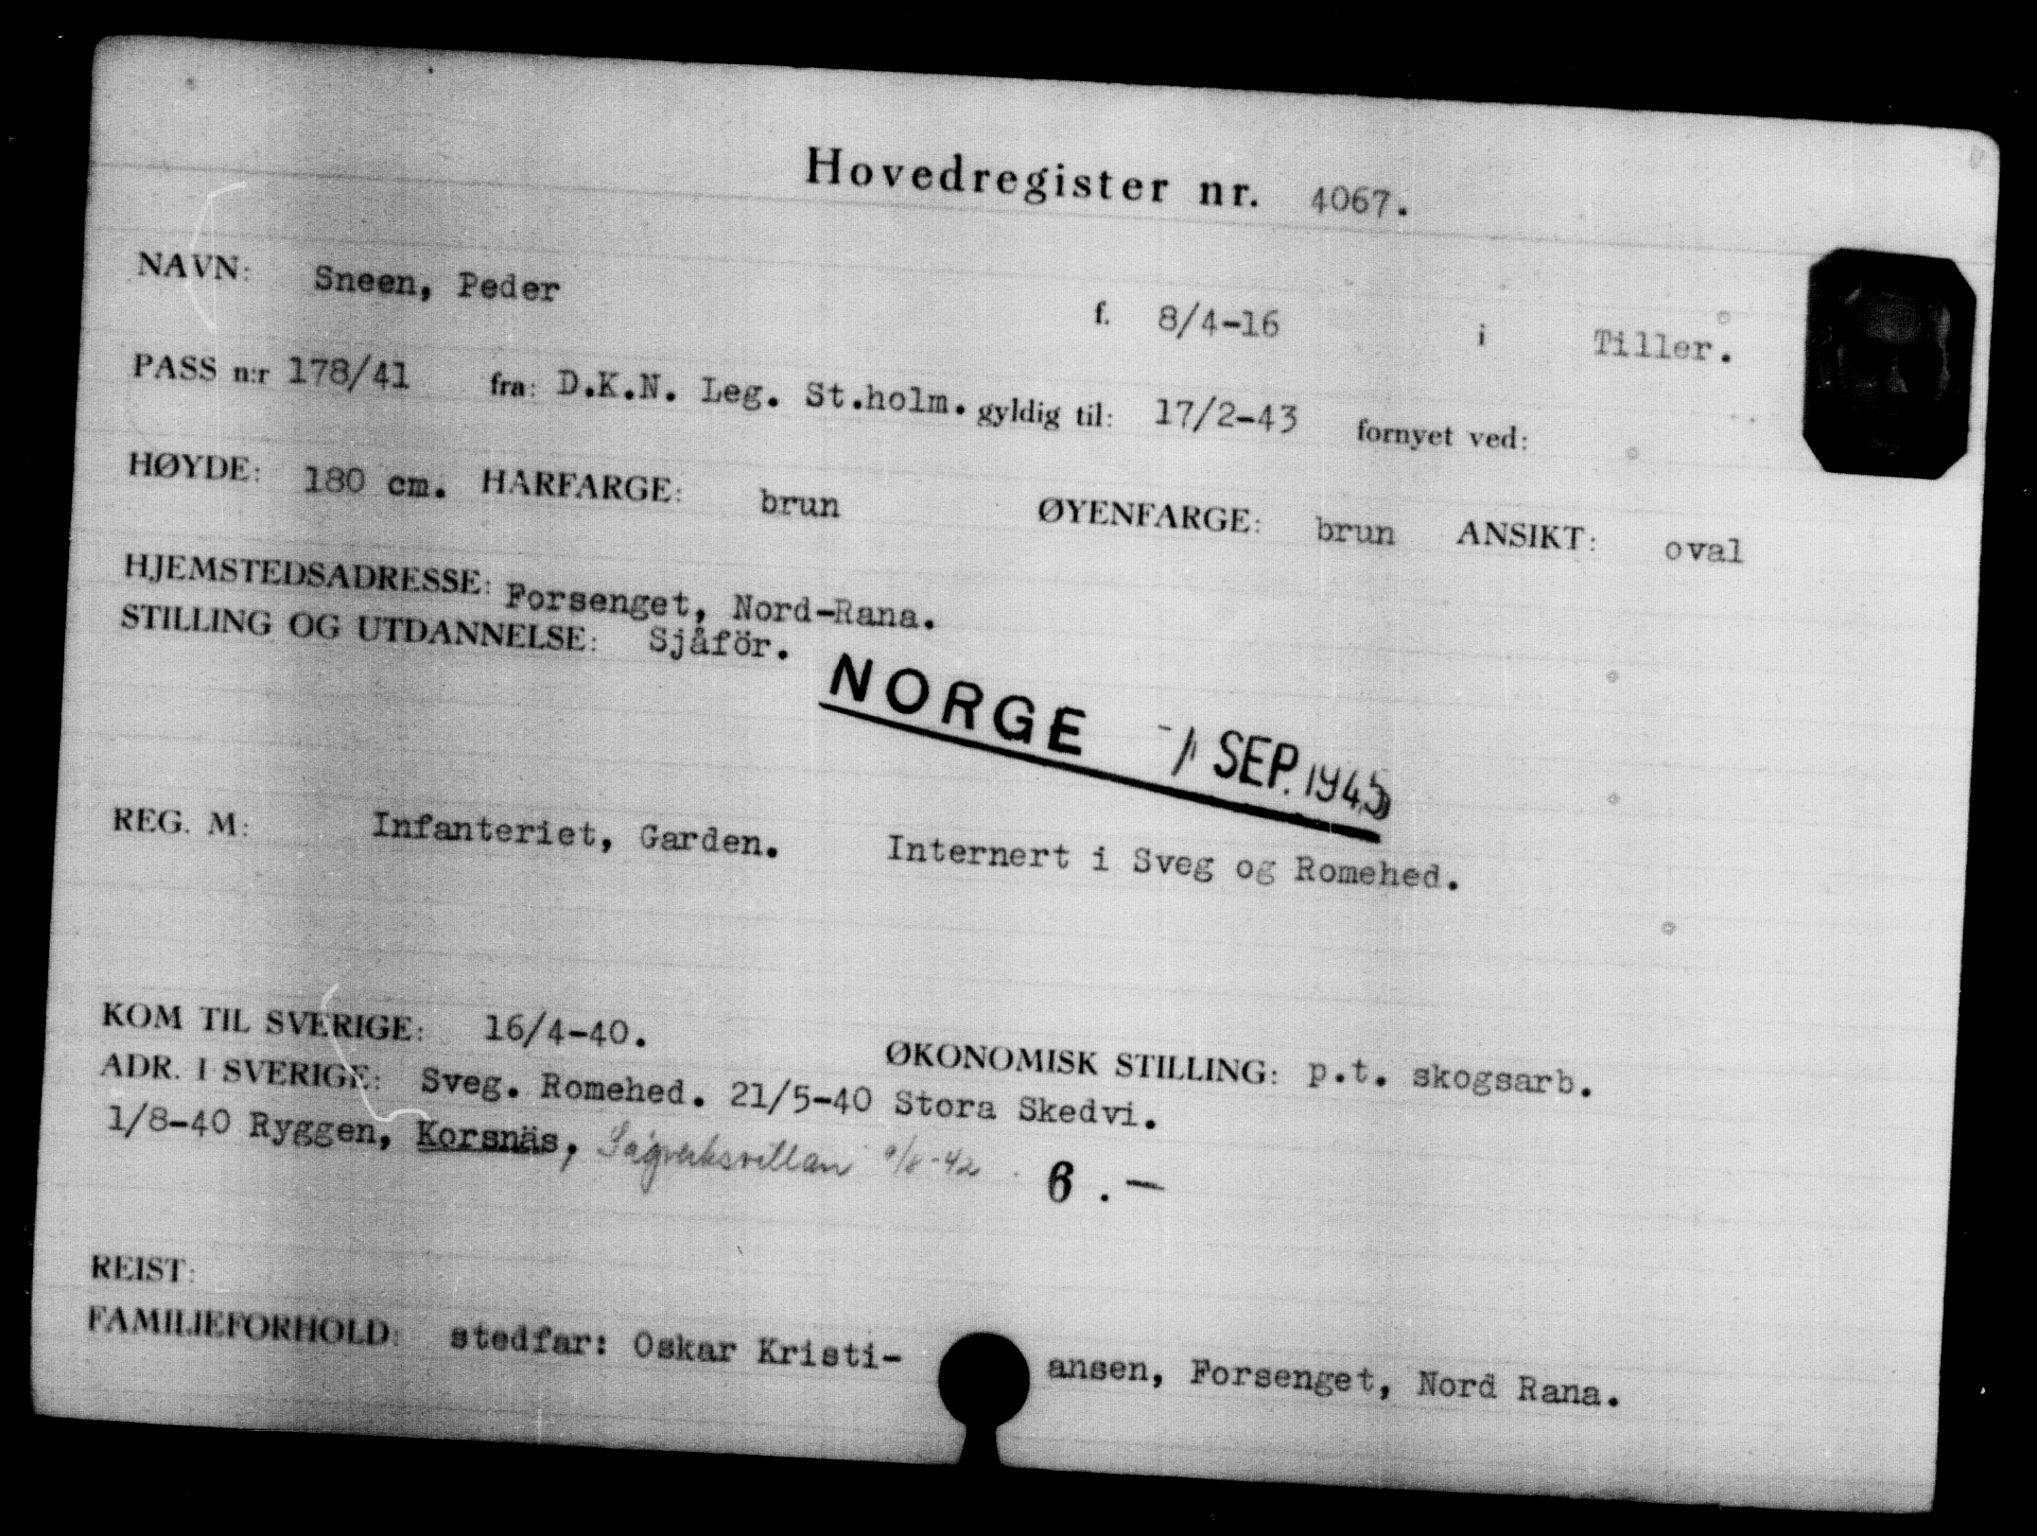 Hovedregister nr. 4067.
NAVN: Sneen, Peder f. 8/4-16 i Tiller.
PASS n:r 178/41 fra: D.K.N. Leg. St.holm. gyldig til: 17/2-43 fornyet ved:
HØYDE: 180 cm. HARFARGE: brun ØYENFARGE: brun ANSIKT: oval
HJEMSTEDSADRESSE: Forsenget, Nord-Rana.
STILLING OG UTDANNELSE: Sjåför.
NORGE -1 SEP. 1945
REG. M: Infanteriet, Garden. Internert i Sveg og Romehed.
KOM TIL SVERIGE: 16/4-40. ØKONOMISK STILLING: p.t. skogsarb.
ADR. I SVERIGE: Sveg. Romehed. 21/5-40 Stora Skedvi.
1/8-40 Ryggen, Korsnäs, Sågverksvillan /8-42 6.—
REIST:
FAMILJEFORHOLD: stedfar: Oskar Kristi- ansen, Forsenget, Nord Rana.